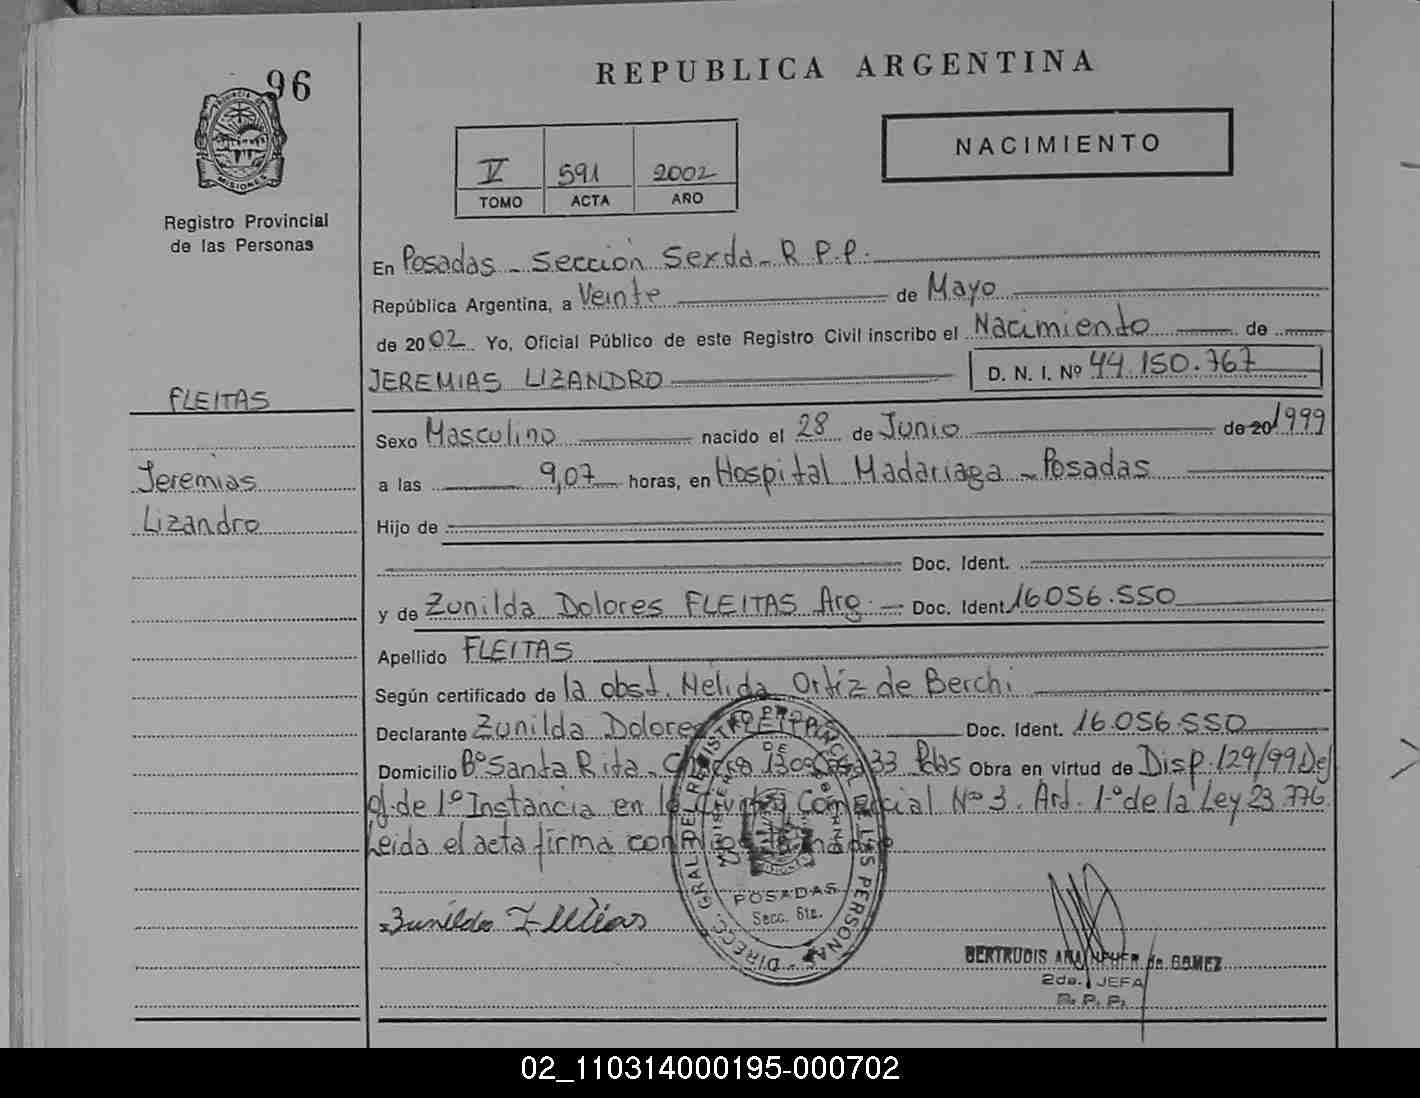 96
PROVINCIA DE
MISIONES
Registro Provincial
de las Personas
FLEITAS
Jeremias
Lizandro
REPUBLICA ARGENTINA
NACIMIENTO
V 591 2002
TOMO ACTA AÑO
En Posadas - Sección Sexta - R P.P.
República Argentina, a Veinte de Mayo
de 2002 Yo, Oficial Público de este Registro Civil inscribo el Nacimiento de
JEREMIAS LIZANDRO D. N. I. Nº 44.150.767
Sexo Masculino nacido el 28 de Junio de 20 1999
a las 9,07 horas, en Hospital Madariaga - Posadas
Hijo de
Doc. Ident.
y de Zunilda Dolores FLEITAS Arg. Doc. Ident 16.056.550
Apellido FLEITAS
Según certificado de la obst. Nelida Ortíz de Berchi
Declarante Zunilda Dolores Doc. Ident. 16.056.550
Domicilio Bº Santa Rita - 130 33 Pdas Obra en virtud de Disp. 129/99 Def
of. de 1º Instancia en lo Comercial Nº 3. Art. 1º de la Ley 23.776
Leida el acta firma
Zunilda Fleitas
DIRECC. GRAL DEL REGISTRO PROVINCIAL DE LAS PERSONAS
POSADAS
Secc. 6ta.
GERTRUDIS de GOMEZ
2da. JEFA
R. P. P.
02_110314000195-000702